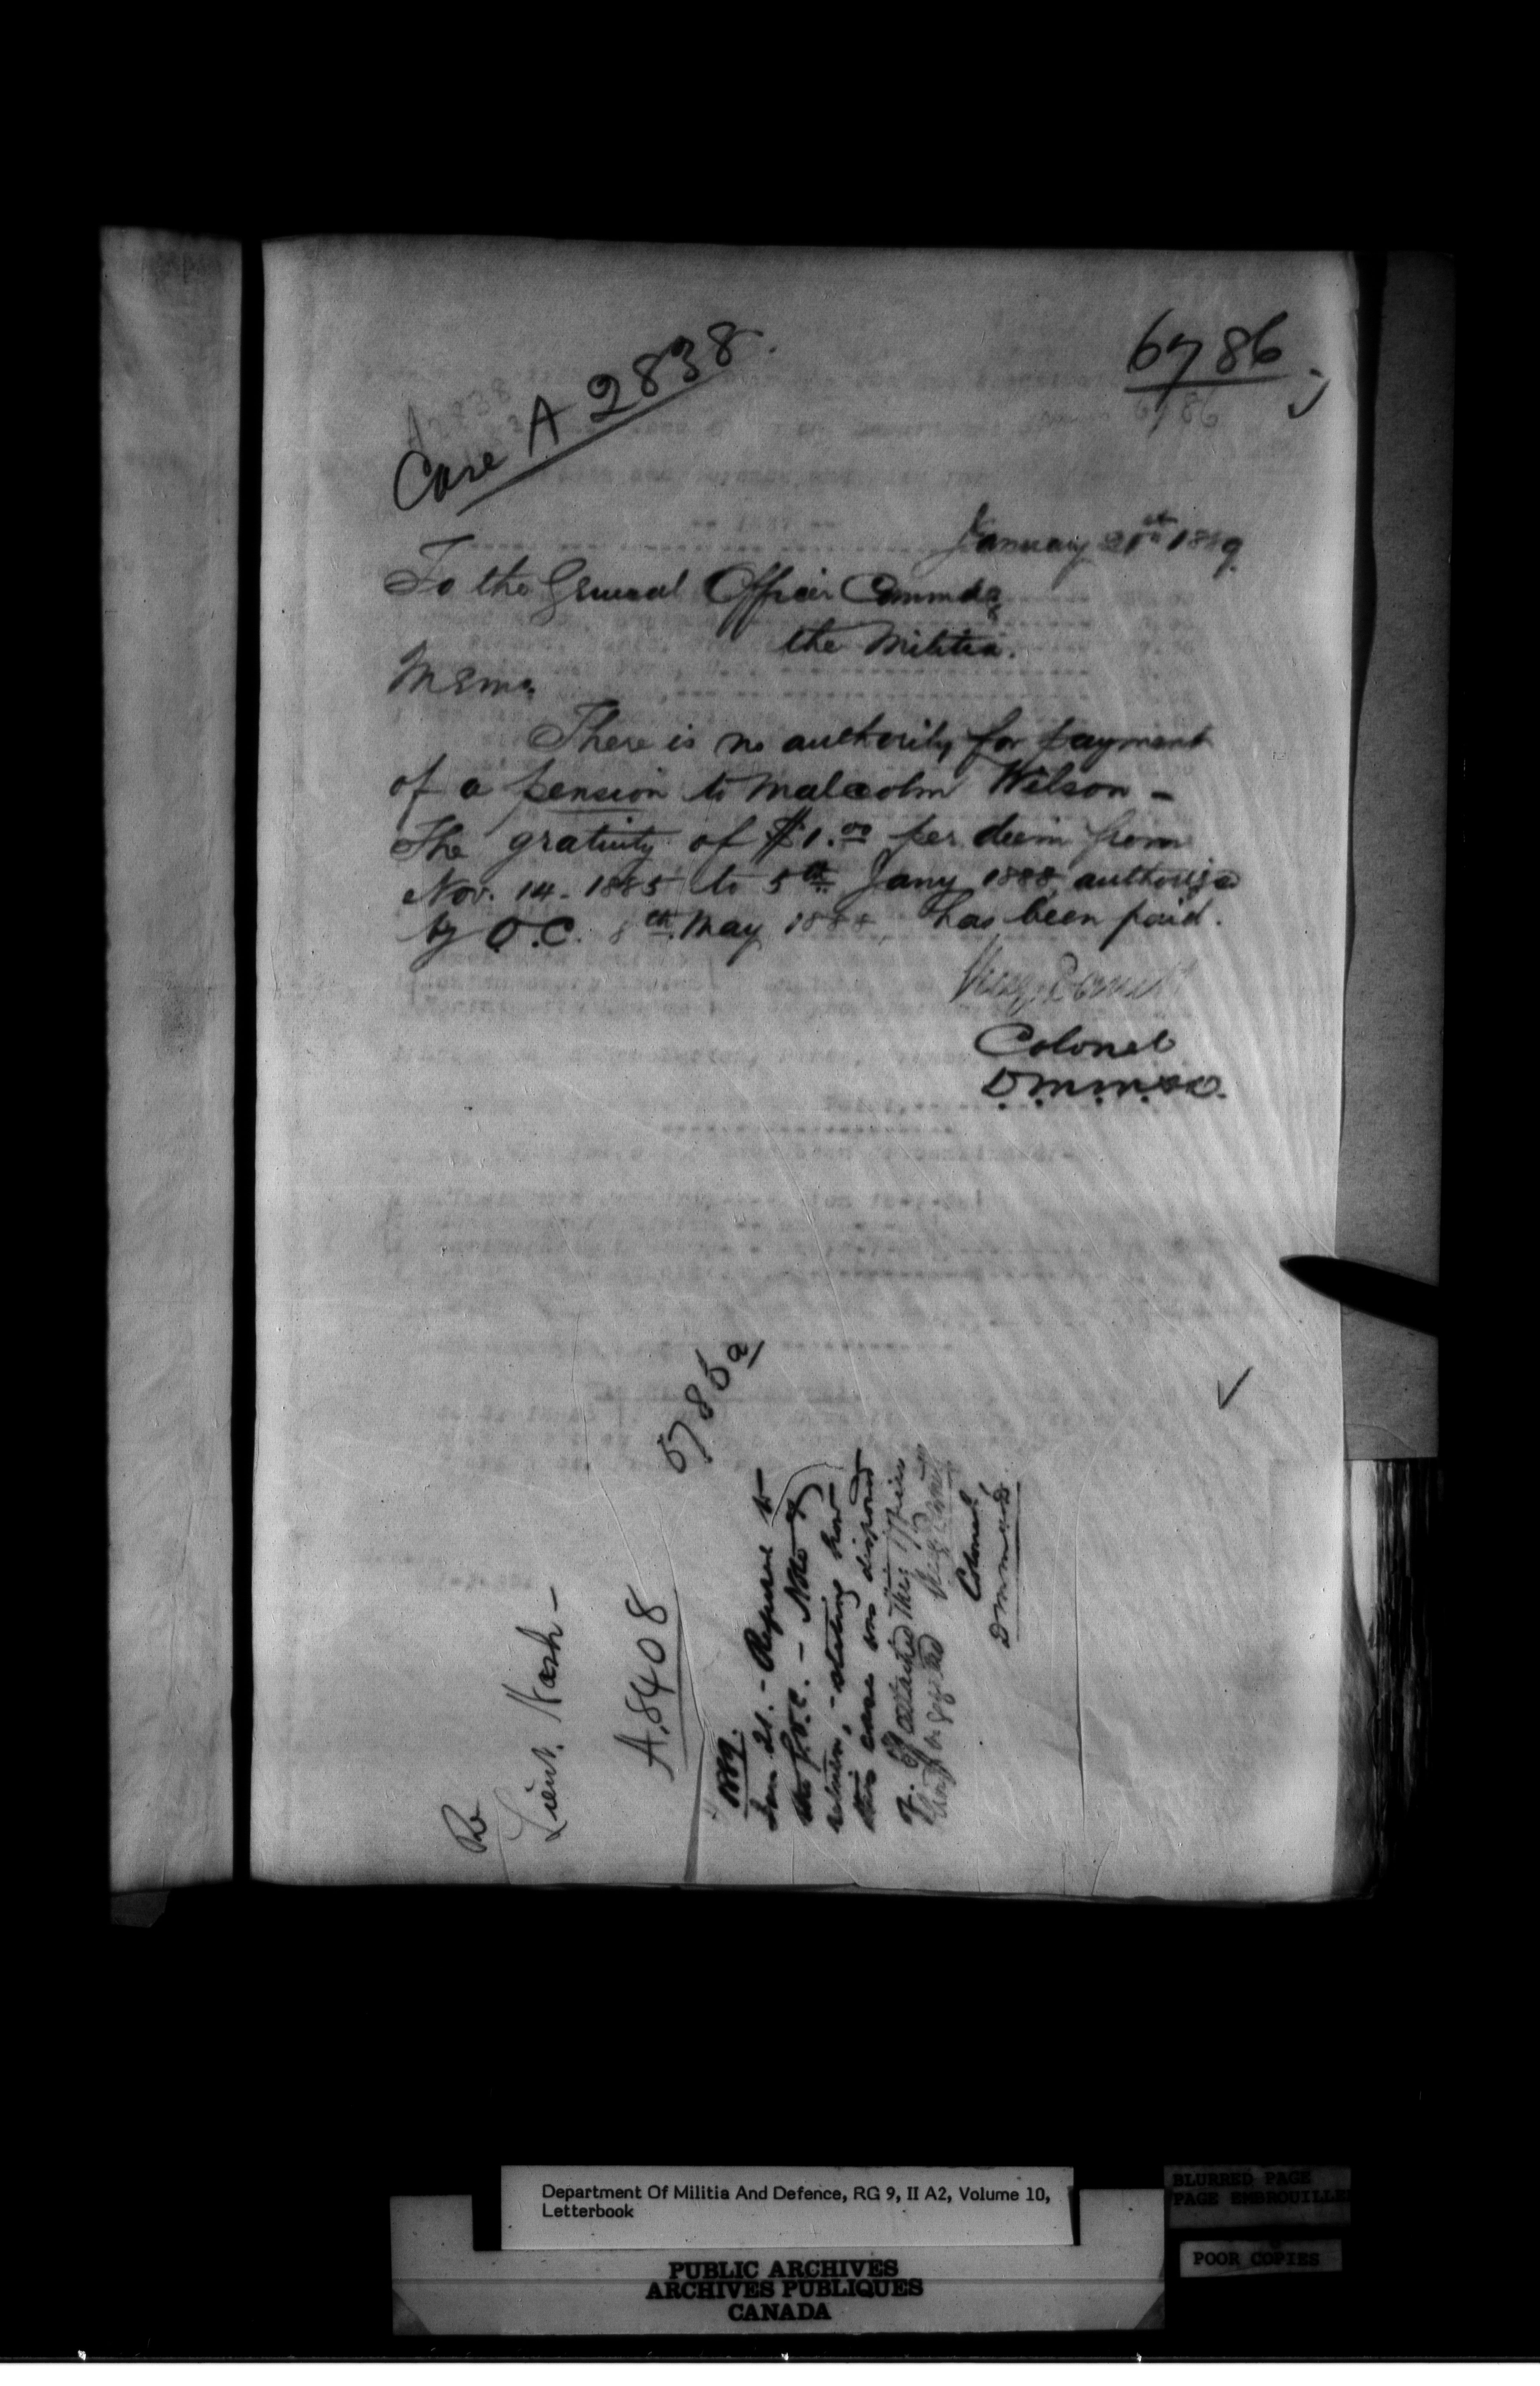 6786
Case A 2838.
January 21st 1889
To the General Officer Commdg
the Militia.
Memo.
There is no authority for payment
of a pension to Malcolm Wilson -
The gratuity of $1.00 per deim from
Nov. 14. 1885 to 5th Jany 1888, authorized
by O.C. 8th May 1888, has been paid.
Colonel
D.M.M.&D.
6786a
Re
Lieut. Nash -
A.8408
1889.
Jan 21. - Request to
the - Note of
return, - stating how
this case was disposed
of
Colonel
D M M & D
Department Of Militia And Defence, RG 9, II A2, Volume 10,
Letterbook
PUBLIC ARCHIVES
ARCHIVES PUBLIQUES
CANADA
BLURRED PAGE
PAGE EMBROUILLE
POOR COPIES